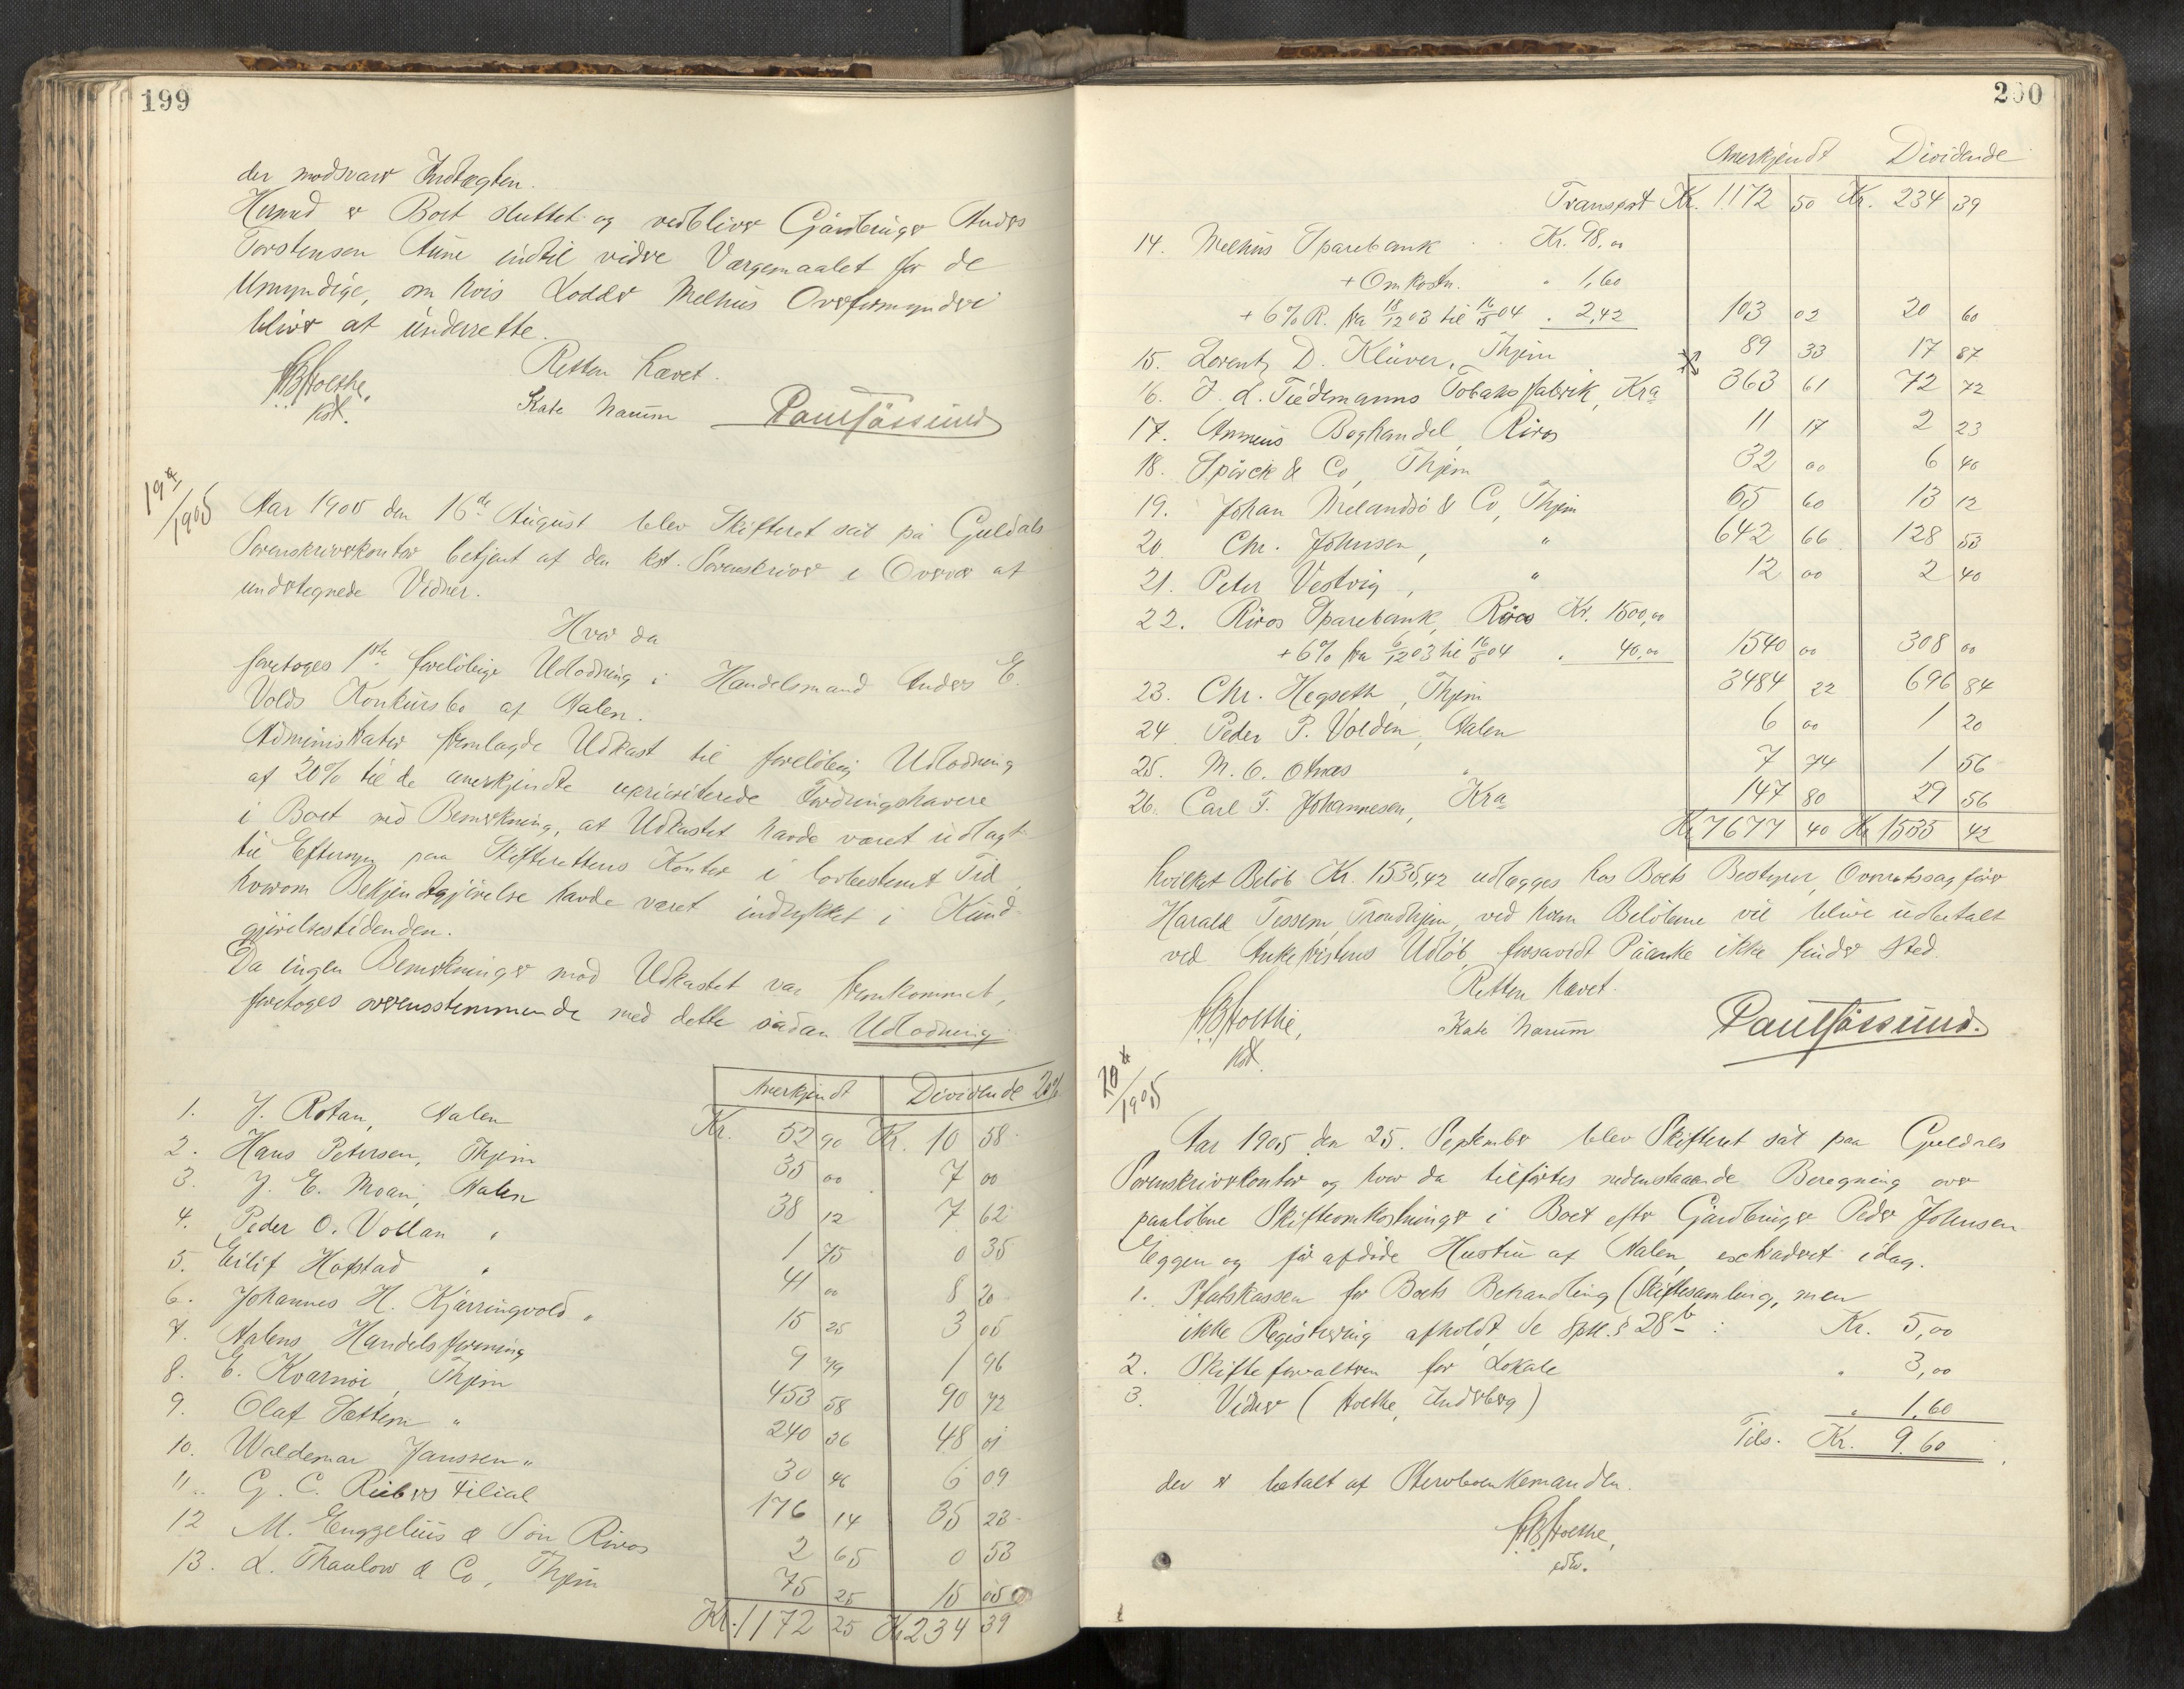 199
der modsvarer Indtægten.
Hermed er Boet sluttet og vedbliver Gårdbruger Anders
Torstensen Aune indtil videre Værgemaalet for de
Umyndige, om hvis Lodder Melhus Overformynderi
bliver at underrette.
Retten hævet.
Holthe,
kst.
Kate Narum
Paul Fossund
19de/1905
Aar 1905 den 16de August blev Skifteret sat på Guldals
Sorenskriverkontor betjent af den kst. Sorenskriver i Overvær af
undertegnede Vidner.
Hvor da
foretoges 1ste foreløbige Udlodning i Handelsmand Anders E.
Volds Konkursbo af Aalen.
Administrator fremlagde Udkast til foreløbig Udlodning
af 20% til de anerkjendte uprioriterede Fordringshavere
i Boet med Bemerkning, at Udkastet havde været udlagt
til Eftersyn paa Skifterettens Kontor i lovbestemt Tid,
hvorom Bekjendtgjørelse havde været indrykket i Kund-
gjørelsestidenden.
Da ingen Bemerkninger mod Udkastet var fremkommet,
foretoges overensstemmende med dette sådan Udlodning:
Anerkjendt Dividende 20%
1. J. Rotan, Aalen Kr. 52 90 Kr. 10 58
2. Hans Petersen, Thjem 35 00 7 00
3. J. E. Moan, Aalen 38 12 7 62
4. Peder O. Vollan " 1 75 0 35
5. Eilif Hofstad " 41 00 8 20
6. Johannes H. Kjærringvold " 15 25 3 05
7. Aalens Handelsforening 9 79 1 96
8. E. Kvarnø, Thjem 453 58 90 72
9. Olaf Sættem " 240 36 48 01
10. Waldemar Janssen " 30 46 6 09
11. G. C. Riebers Filial 176 14 35 23
12 M. Engzelius & Søn Røros 2 65 0 53
13. L. Thaulow & Co, Thjem 75 25 15 05
Kr. 1172 25 Kr 234 39
200
Anerkjendt Dividende
Transport Kr. 1172 50 Kr. 234 39
14. Melhus Sparebank Kr. 98,00
+ Omkostn. " 1,60
+ 6% R. fra 18/12 03 til 16/5 04 " 2,42 103 02 20 60
15. Lorentz D. Klüver, Thjem 89 33 17 87
16. J. L. Tiedemanns Tobaksfabrik, Kra 363 61 72 72
17. Amneus Boghandel, Røros 11 17 2 23
18. Spörck & Co, Thjem 32 00 6 40
19. Johan Melandsø & Co, Thjem 65 60 13 12
20 Chr. Johnsen, " 642 66 128 53
21. Peter Vestvig, " 12 00 2 40
22. Røros Sparebank, Røros Kr. 1500,00
+ 6% fra 6/12 03 til 16/5 04 " 40,00 1540 00 308 00
23. Chr. Hegseth, Thjem 3484 22 696 84
24 Peder P. Volden, Aalen 6 00 1 20
25. M. O. Otnæs " 7 74 1 56
26. Carl F. Johannesen, Kra 147 80 29 56
Kr 7677 40 Kr 1535 42
hvilket Beløb Kr. 1535,42 udlægges hos Boets Bestyrer, Overretssagfører
Harald Tessem, Trondhjem, ved hvem Beløbene vil blive udbetalt
ved Ankefristens Udløb, forsavidt Påanke ikke finder Sted.
Retten hævet.
Holthe,
kst.
Kate Narum
Paul Fossund.
20de/1905
Aar 1905 den 25. September blev Skifteret sat paa Guldals
Sorenskriverkontor og hvor da tilførtes nedenstaaende Beregning over
paaløbne Skifteomkostninger i Boet efter Gårdbruger Peder Johnsen
Eggen og før afdøde Hustru af Aalen, extraderet idag.
1. Statskassen for Boets Behandling (Skiftesamling, men
ikke Registrering afholdt, se Spll. § 28b : Kr. 5,00
2. Skifteforvalteren for Lokale " 3,00
3. Vidner (Holthe, Inderberg) " 1,60
Tils. Kr. 9.60
der er betalt af Stervboenkemanden.
Holthe,